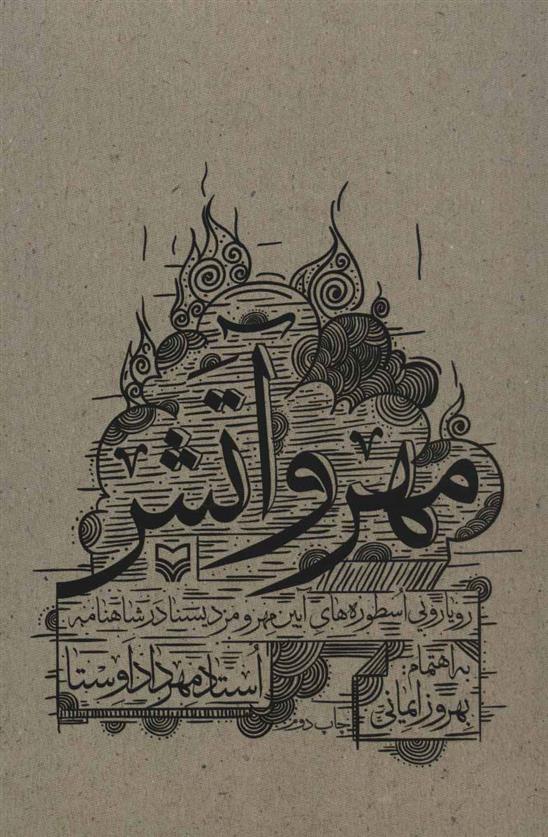 مهر و آتش
رویارویی اسطوره‌های آیین مهر و مزدیسنا در شاهنامه
استاد مهرداد اوستا
به اهتمام:
بهروز ایمانی
چاپ دوم